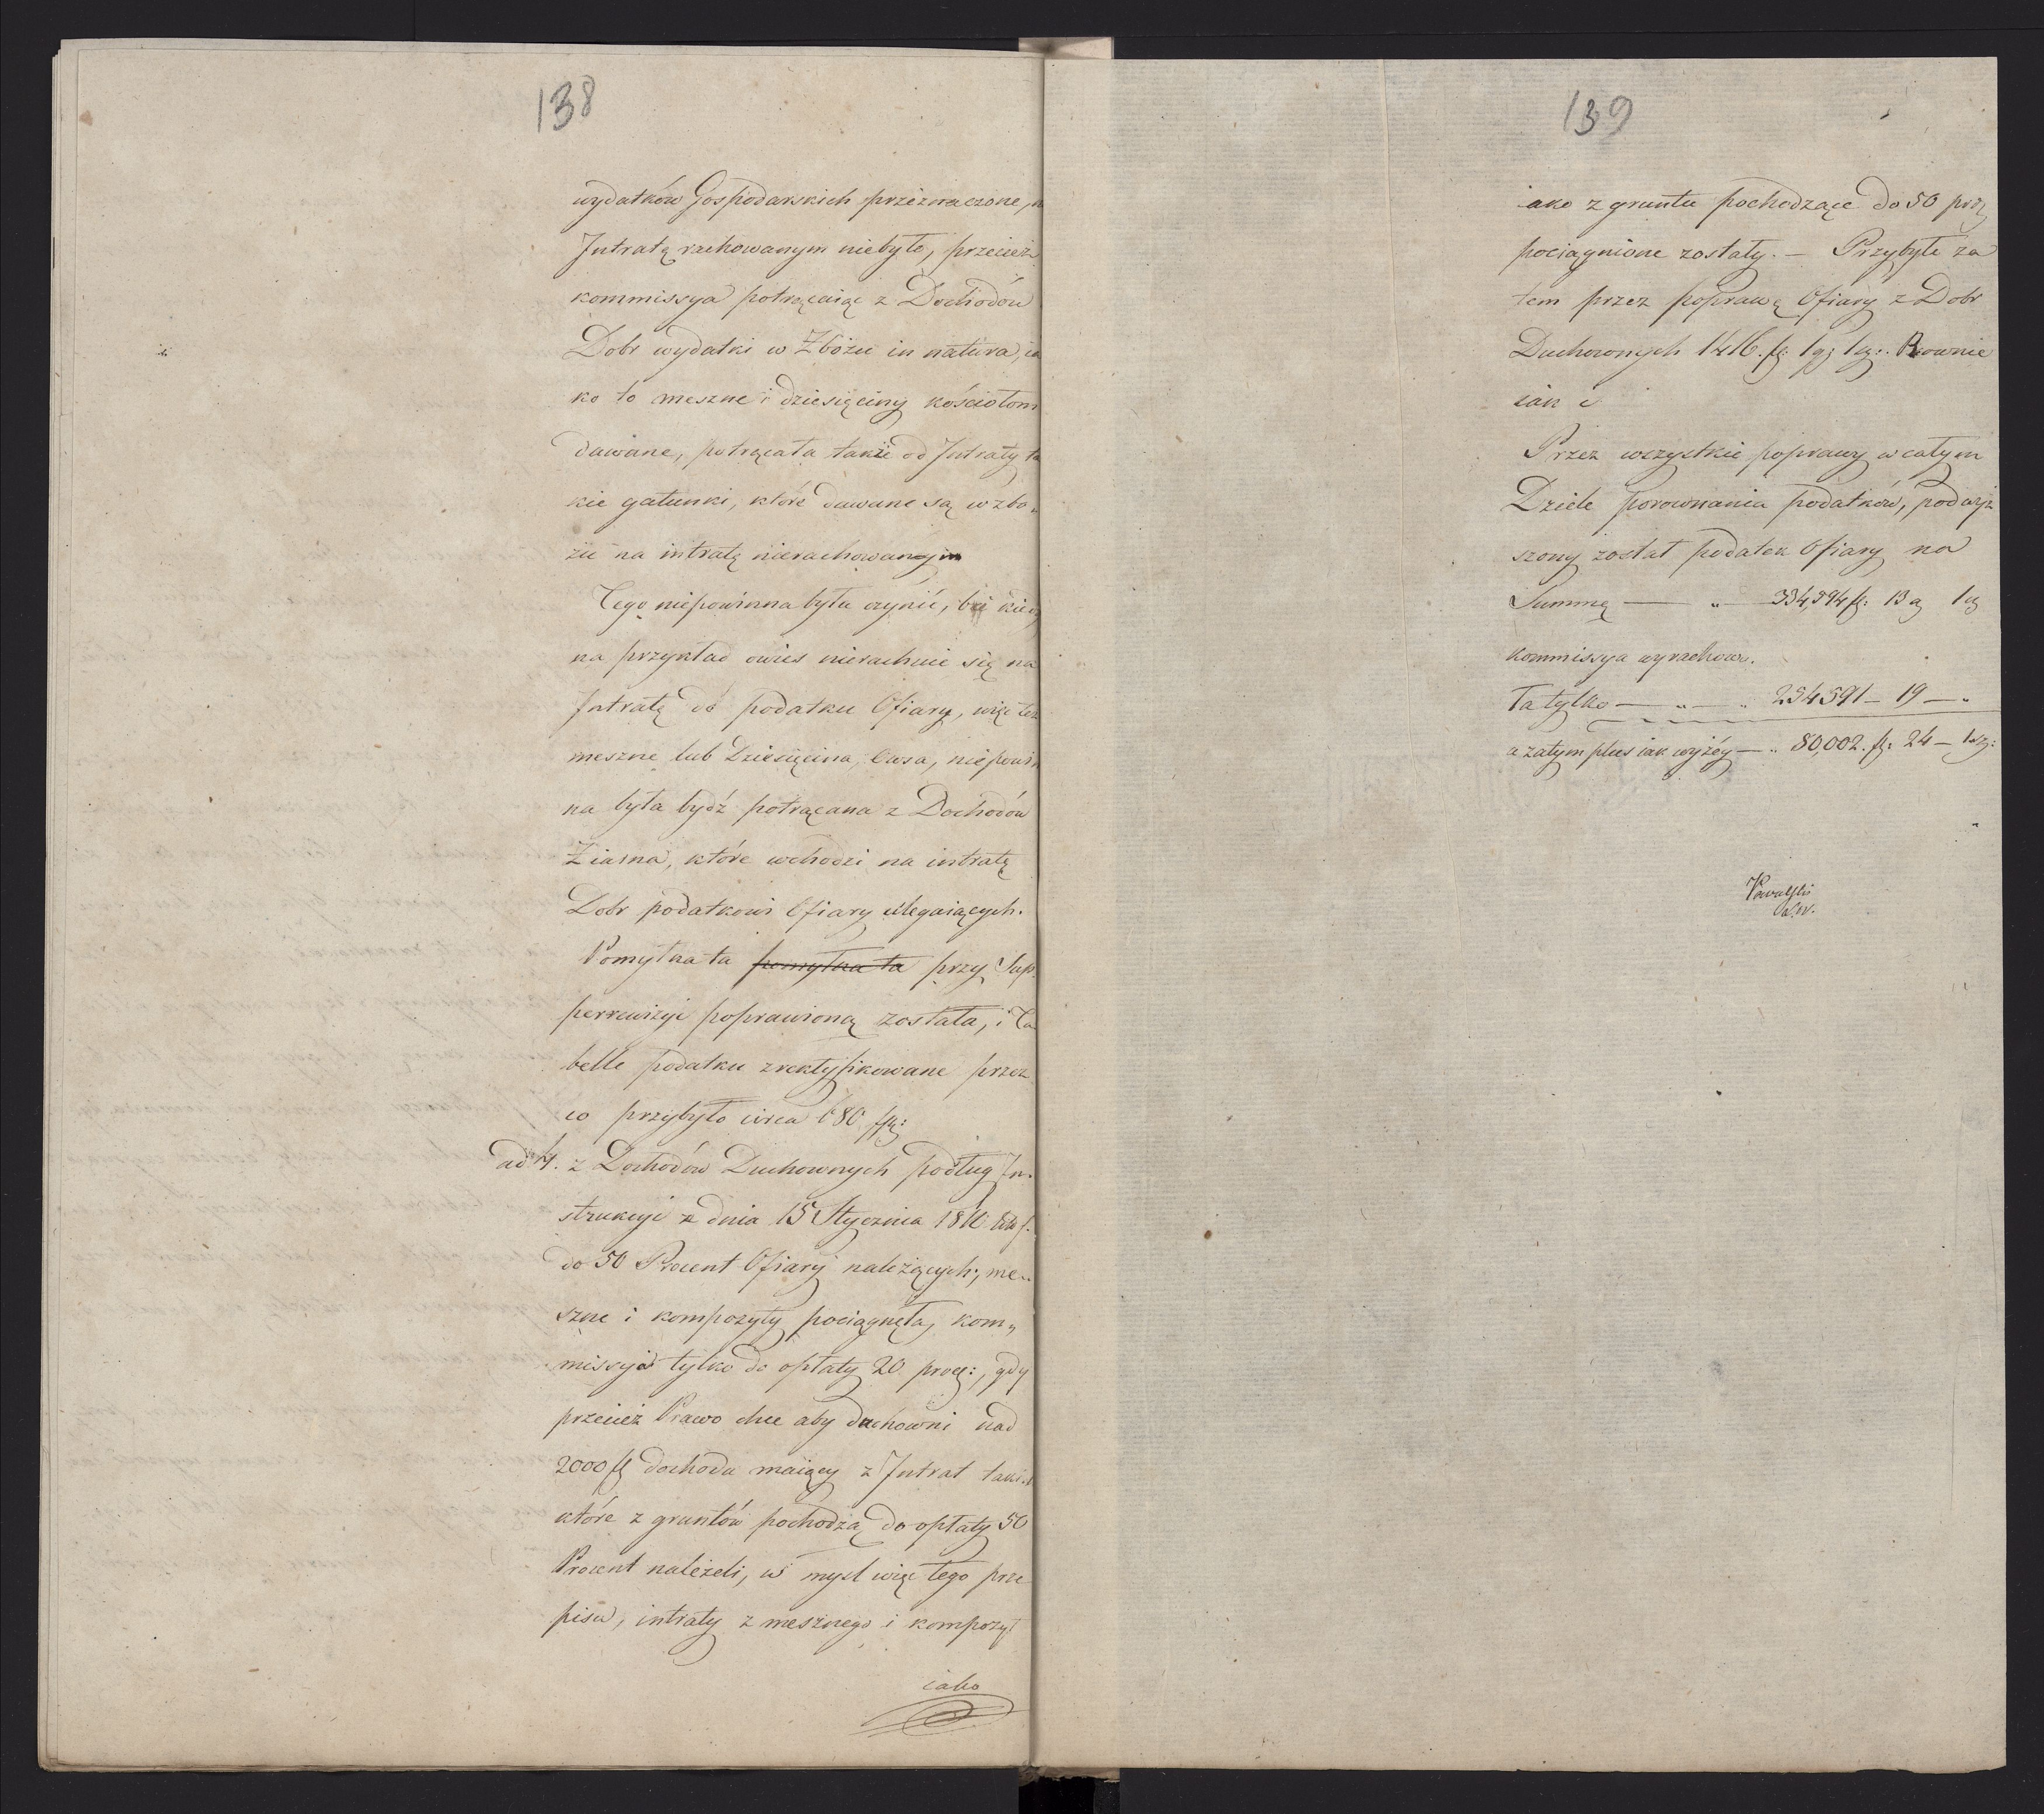 138
wydatków Gospodarskich przeznaczone, n
Intratę rachowanym niebyło, przecież
kommissya potrącaiąc z Dochodów
Dobr wydatki w Zbożu in natura, ia
ko to meszne i dziesięciny kościołom
dawane, potrącała takie od Intraty ta
kie gatunki, które dawane są w zbo„
żu na intratę nierachowanym
Tego niepowinna była czynić, bo kiedy
na przykład owies nierachuie się na
Intratę do podatku Ofiary, więc też
meszne lub Dziesięcina, Owsa, niepowin
na była bydź potrącana z Dochodów
Ziarna, które wchodzi na intratę
Dobr podatkowi Ofiary ulegaiących.
Pomyłka ta pomyłka ta przy Sup„
perrewizyi poprawioną została, i Ta
belle podatku zrektyfikowane przez
co przybyło circa 680 fl:
ad 4. z Dochodów Duchownych podług In„
strukcyi z dnia 15 Stycznia 1810
do 50 Procent Ofiary należących, me„
szne i kompozyty pociągnęła, kom„
missyia tylko do opłaty 20 proc:, gdy
przecież Prawo chce aby duchowni nad
2000 fl dochodu maiący z Intrat takich
które z gruntów pochodzą do opłaty 50
Procent należeli, w myśl więc tego prze
pisu, intraty z mesznego i kompozyt
iako
139
iako z gruntu pochodzące do 50 prc
pociągnione zostały. — Przybyło za
tem przez poprawę Ofiary z Dobr
Duchownych 1416. fl. 1 g 1 sz:. Rownie
iak i
Przez wszystkie poprawy w całym
Dziele porownania podatków, podwyż
szony został podatek Ofiary na
Summę — „ — 334,594 fl: 13 g 1 sz
kommissya wyrachow.
Ta tylko — „ — „ 254591 — 19 — „
a zatym plus iak wyżéy — „ 80,002. fl: 24 — 1 sz: